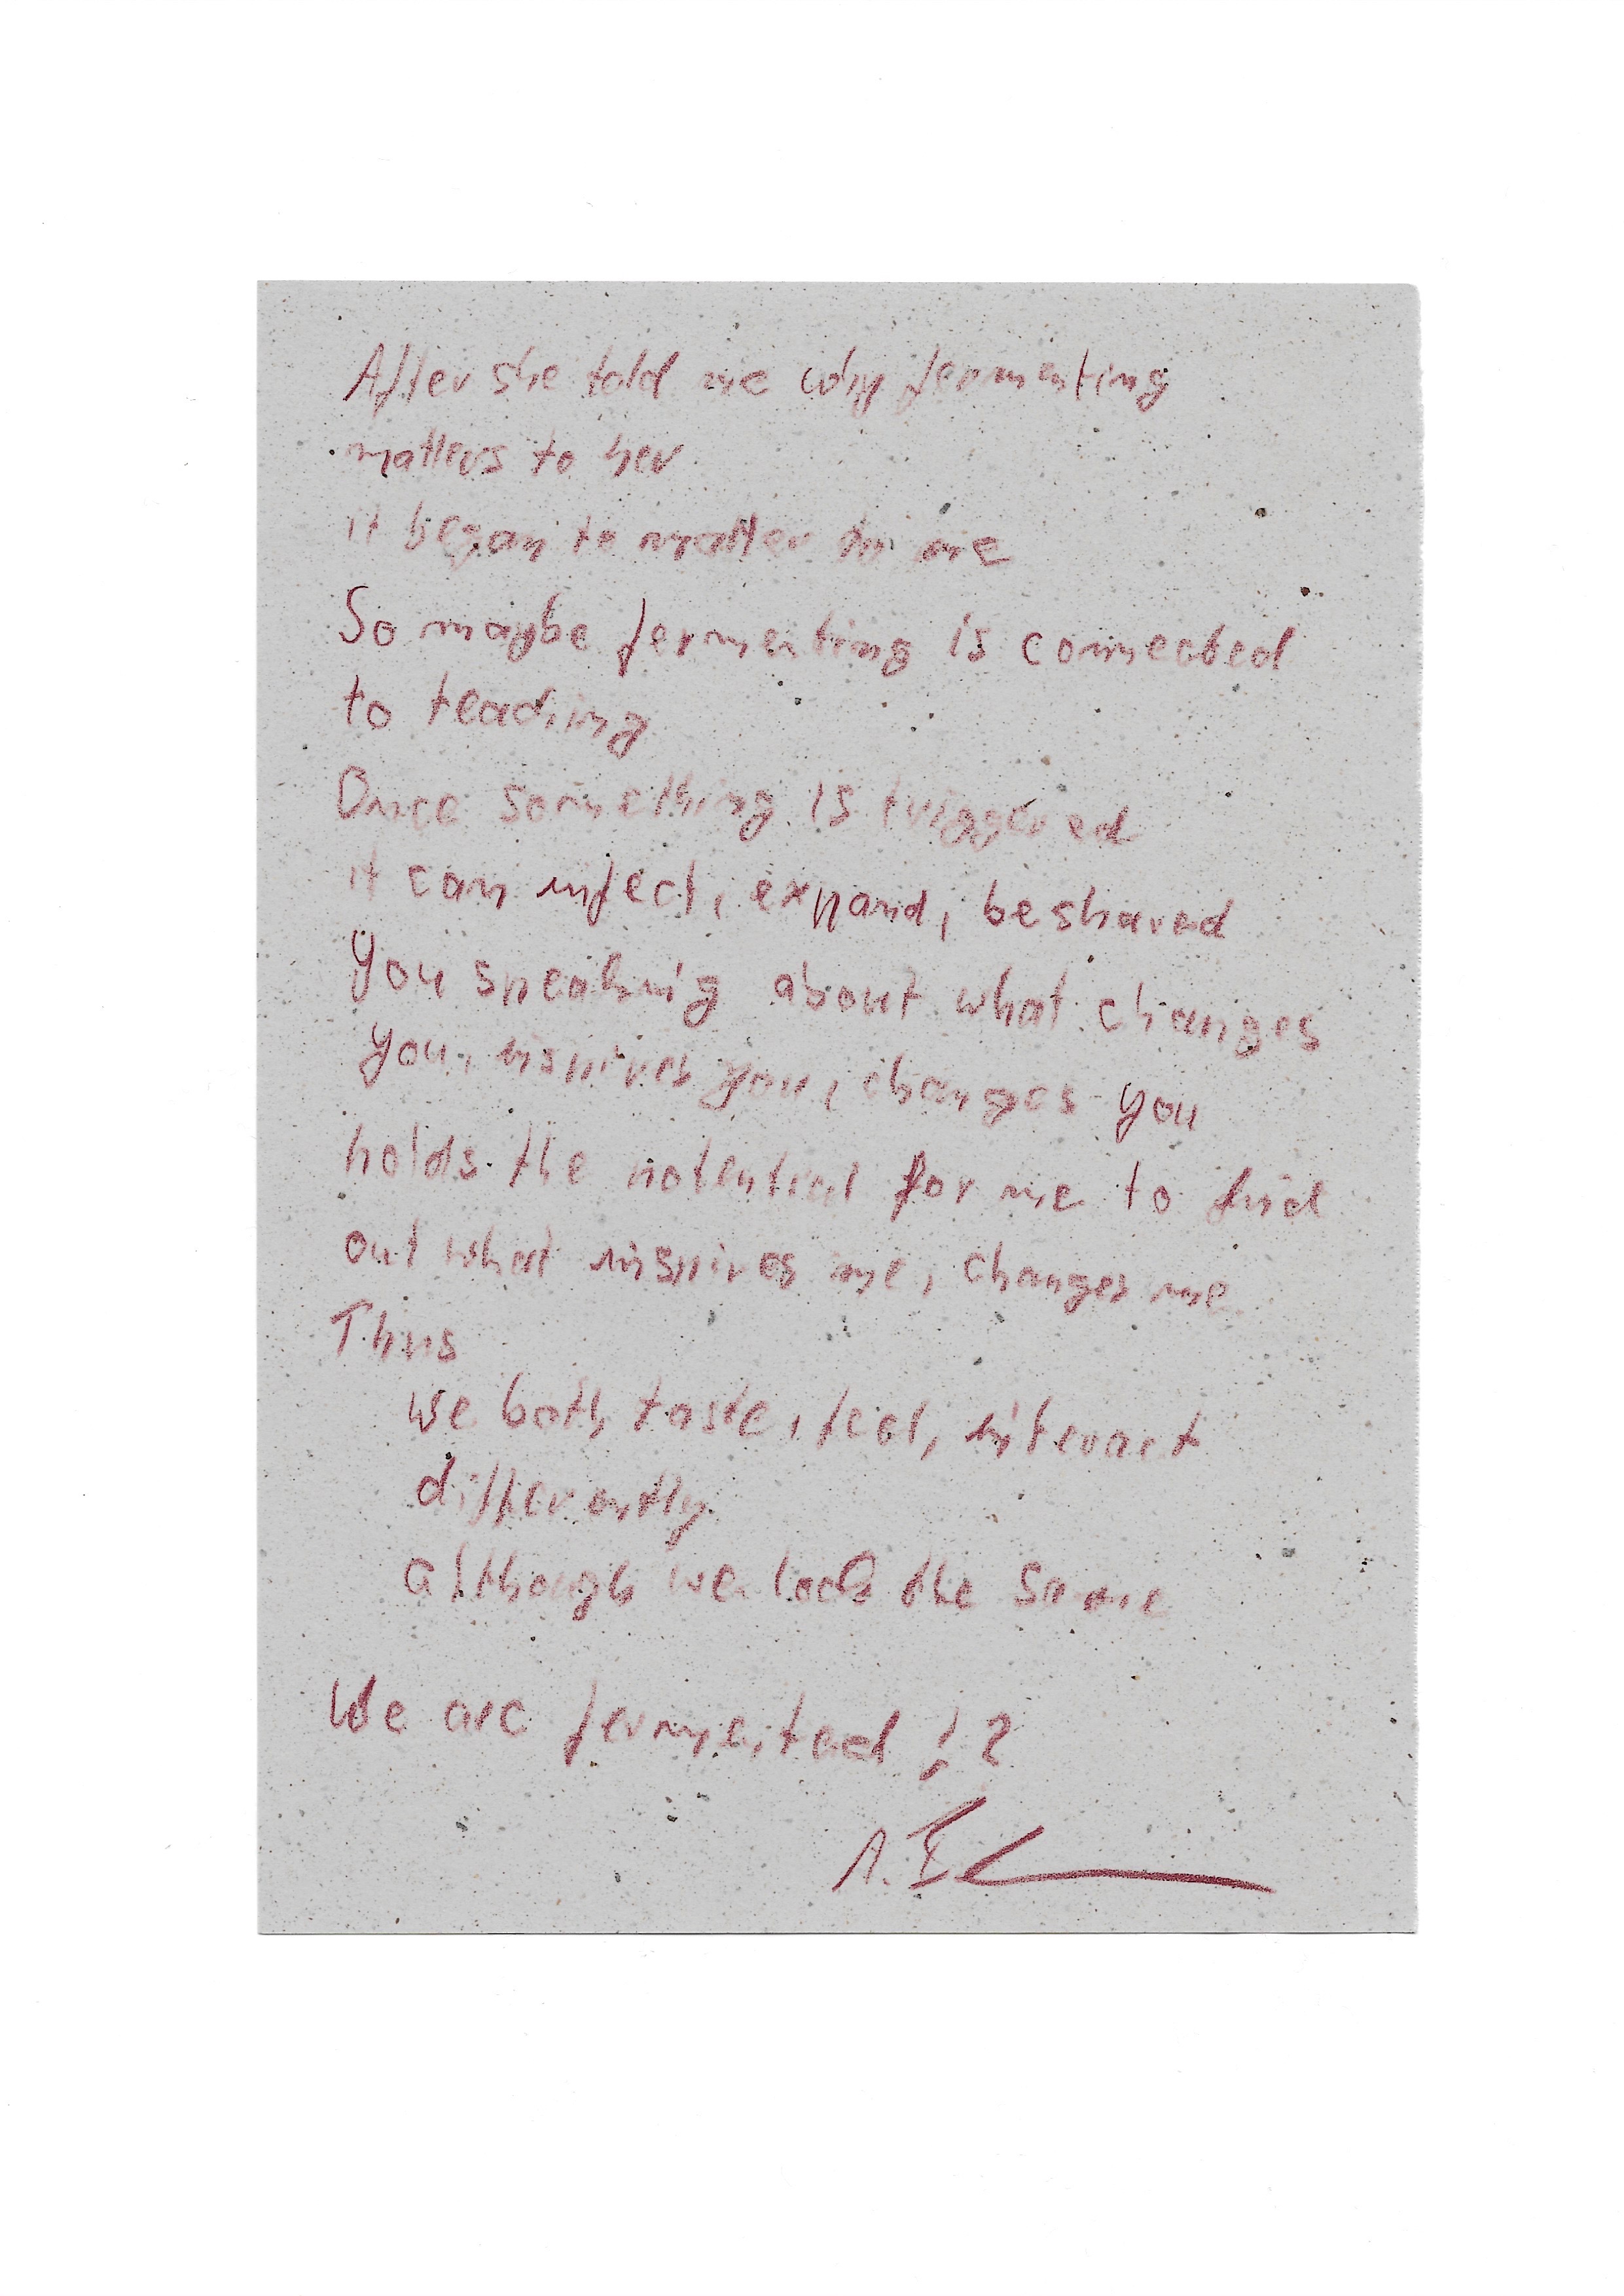 After she told me why fermenting
matters to her
it began to matter to me
So maybe fermenting is connected
to teaching
Once something is triggered
it can infect, expand, be shared
you speaking about what changes
you, inspires you, changes you
holds the potential for me to find
out what inspires me, changes me
Thus
we both taste, feel, interact
differently
although we look the same
We are fermented !?